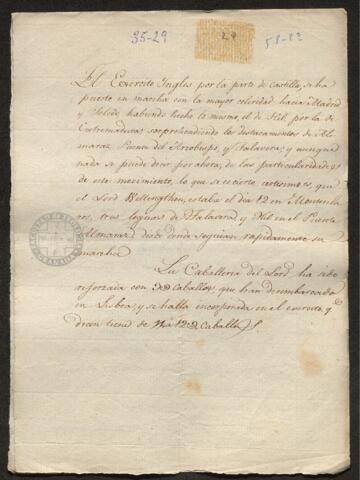 35-29
29
58-22
El Exercito Ingles por la parte de Castilla, se ha
puesto en marcha con la mayor celeridad hacia Madrid
y Toledo, habiendo hecho lo mismo el de Hil por la de
Extremadura, sorprendiendo los destacamentos de Al-
maraz, Puente del Arzobispo, y Talavera; y aunque
nada se puede decir por ahora, de las particularidades
de este movimiento, lo que es cierto certisimo es, que
el Lord Wellengthon, estaba el dia 12 en
tres leguas de Talavera y Hil en el Puente
Almaraz desde donde seguian rapidamente su
marcha
La Caballeria del Lord ha sido
reforzada con caballos, que han desembarcado
en Lisboa, y se halla incorporada en el exercito, y
dicen tiene de caballos